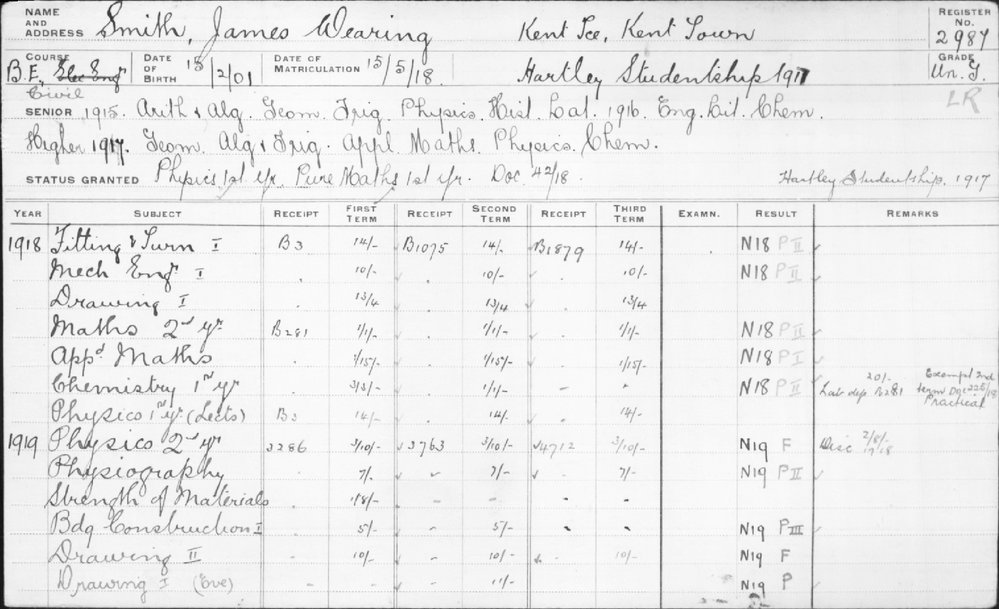 NAME AND ADDRESS Smith, James Wearing Kent Tce, Kent Town REGISTER No. 2987
COURSE B.E., Elec Engr Civil DATE OF BIRTH 15/2/01 DATE OF MATRICULATION 15/5/18. Hartley Studentship 1917 GRADE Un. G.
LR
SENIOR 1915. Arith & Alg. Geom. Trig. Physics. Hist. Lat. 1916. Eng. Lit. Chem.
Higher 1917. Geom. Alg & Trig. Appl. Maths. Physics. Chem.
STATUS GRANTED Physics 1st yr. Pure Maths 1st yr. Doc 42/18. Hartley Studentship. 1917
YEAR SUBJECT RECEIPT FIRST TERM RECEIPT SECOND TERM RECEIPT THIRD TERM EXAMN. RESULT REMARKS
1918 Fitting & Turn I B3 14/- B1075 14/- B1879 14/- N18 P II
Mech Engr I 10/- 10/- 10/- N18 P II
Drawing I 13/4 13/4 13/4
Maths 2nd yr B281 1/1/- 1/1/- 1/1/- N18 P II
Appd Maths 1/15/- 1/15/- 1/15/- N18 P I
Chemistry 1st yr 3/3/- 1/1/- - N18 P II 20/- Lab dep B281 Exempt 2nd term Doc 225/18 Practical
Physics 1st yr (Lects) B3 14/- 14/- 14/-
1919 Physics 2nd yr 3286 3/10/- 3763 3/10/- 4712 3/10/- N19 F Disc 2/8/- 17/18
Physiography 7/- 7/- 7/- N19 P II
Strength of Materials 18/- - -
Bdg Construction I 5/- 5/- N19 P III
Drawing II 10/- 10/- 10/- N19 F
Drawing I (Eve) - 11/- N19 P